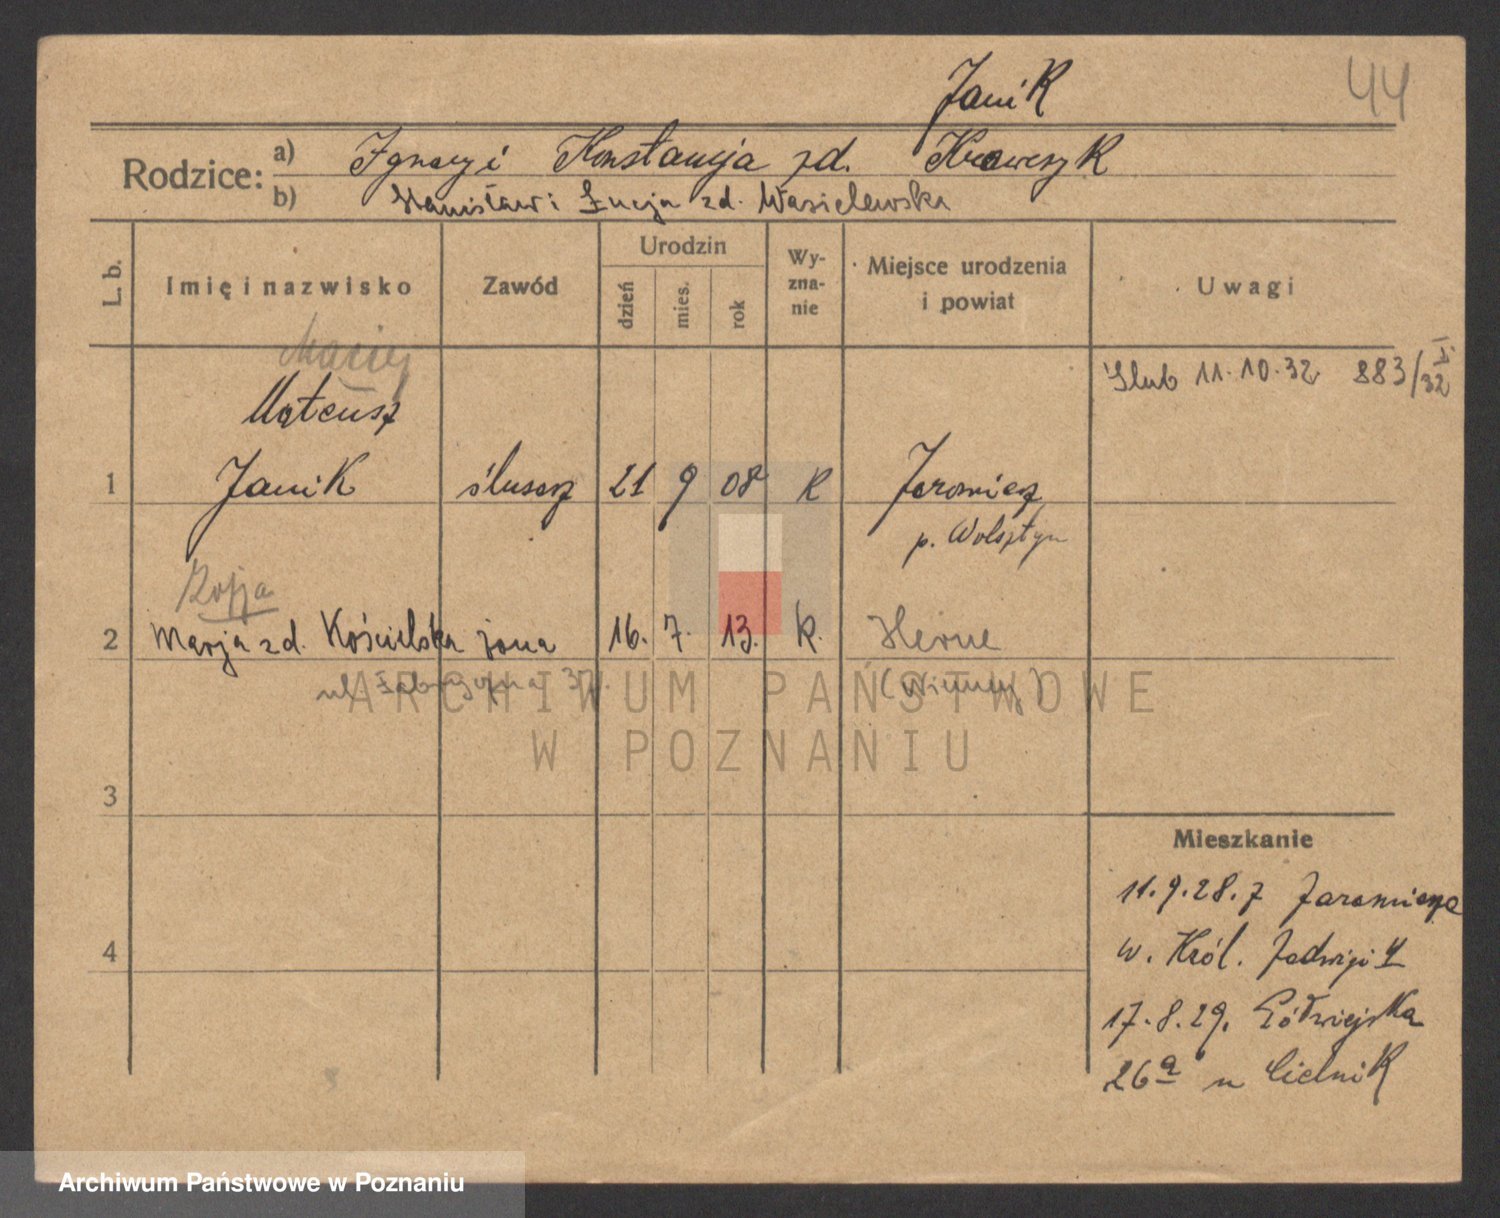 Janik
44
Rodzice:
a) Ignacy i Konstancja zd. Krawczyk
b) Stanisław i Łucja zd. Wasielewska
L. b.
Imię i nazwisko
Zawód
Urodzin
dzień
mies.
rok
Wy-
zna-
nie
Miejsce urodzenia
i powiat
Uwagi
Maciej
Ślub 11.10.32 883/32 I
Mateusz
1 Janik ślusarz 21 9 08 K Jaromierz
p. Wolsztyn
Rozja
2 Marja zd. Kościelska żona 16. 7. 13. K. Herne
ul. 37. (Niemcy)
ARCHIWUM PAŃSTWOWE
W POZNANIU
3
4
Mieszkanie
11.9.28. z Jaromierza
w. Król. Jadwigi
17.8.29. Półwiejska
26a u Cielnik
Archiwum Państwowe w Poznaniu